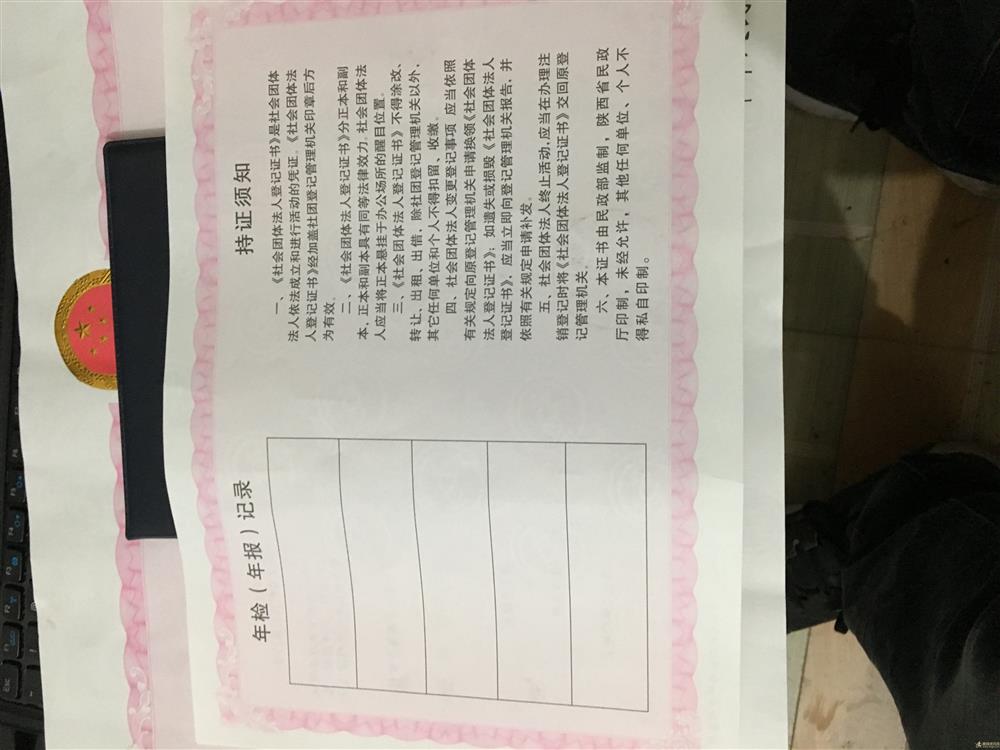 年检（年报）记录
持证须知
一、《社会团体法人登记证书》是社会团体
法人依法成立和进行活动的凭证。《社会团体法
人登记证书》经加盖社团登记管理机关印章后方
为有效。
二、《社会团体法人登记证书》分正本和副
本，正本和副本具有同等法律效力。社会团体法
人应当将正本悬挂于办公场所的醒目位置。
三、《社会团体法人登记证书》不得涂改、
转让、出租、出借，除社团登记管理机关以外，
其它任何单位和个人不得扣留、收缴。
四、社会团体法人变更登记事项，应当依照
有关规定向原登记管理机关申请换领《社会团体
法人登记证书》；如遗失或损毁《社会团体法人
登记证书》，应当立即向登记管理机关报告，并
依照有关规定申请补发。
五、社会团体法人终止活动，应当在办理注
销登记时将《社会团体法人登记证书》交回原登
记管理机关
六、本证书由民政部监制，陕西省民政
厅印制，未经允许，其他任何单位、个人不
得私自印制。
Esc
F2
F3
F4